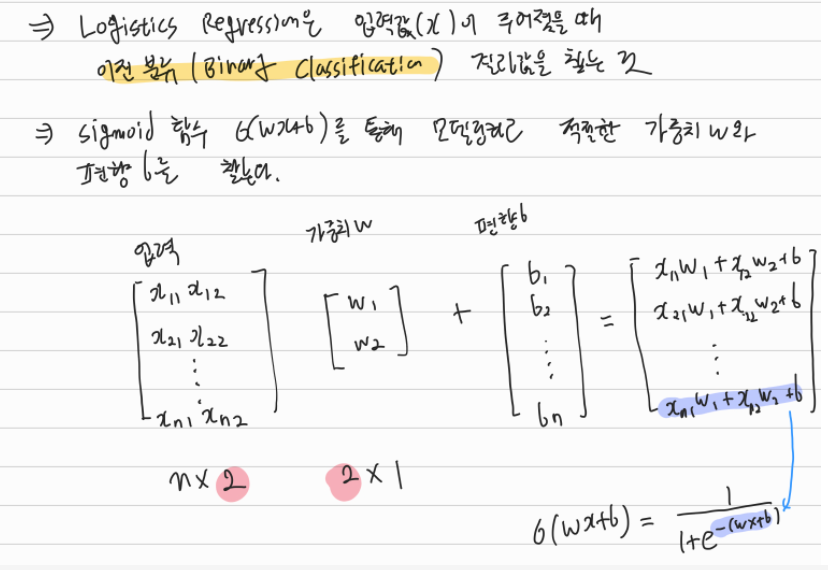 ⇒ Logistics Regression은 입력값(x)이 주어졌을 때
이진 분류 (Binary Classification) 진리값을 찾는 것
⇒ sigmoid 함수 σ(wx+b)를 통해 모델링하고 적절한 가중치 w와
편향 b를 찾는다.
입력 가중치 w 편향 b
[ x₁₁ x₁₂ ] [ w₁ ] + [ b₁ ] = [ x₁₁w₁ + x₁₂w₂+b ]
x₂₁ x₂₂ w₂ b₂ x₂₁w₁+x₂₂w₂+b
⋮ ⋮ ⋮
xₙ₁ xₙ₂ bₙ xₙ₁w₁+xₙ₂w₂+b
n×2 2×1
σ(wx+b) = 1 / 1+e^-(wx+b)